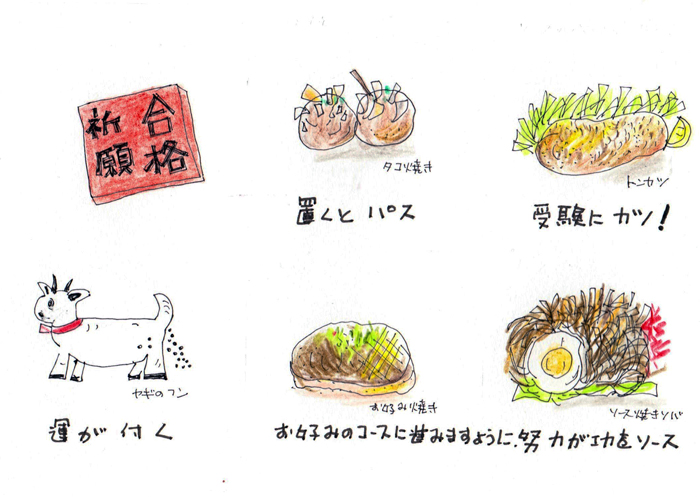 合格
祈願
タコ焼き
置くとパス
トンカツ
受験にカツ！
ヤギのフン
運が付く
お好み焼き
ソース焼きソバ
お好みのコースに進みますように、努力が功をソース